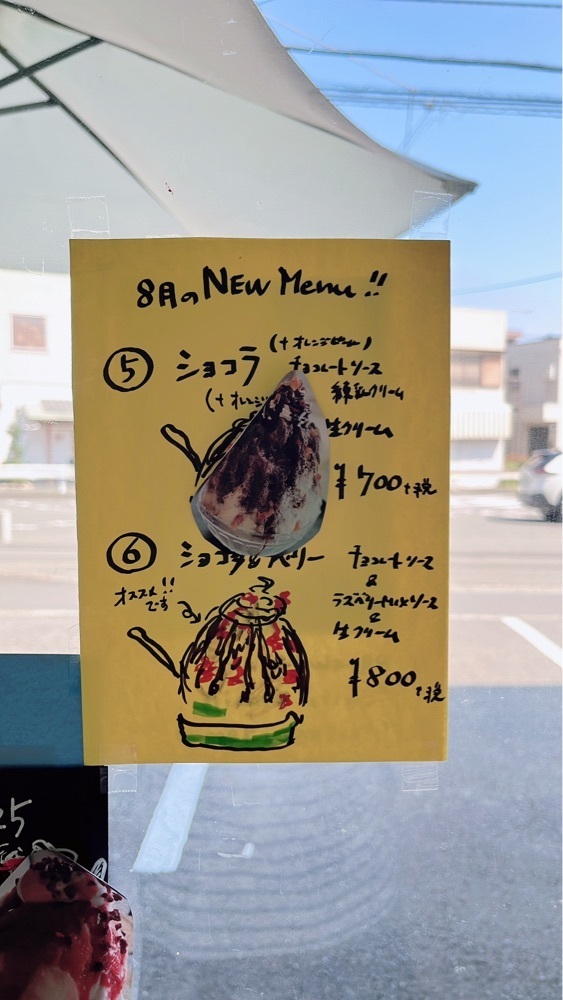 8月のNEW Menu!!
⑤ ショコラ
(+オレンジピール)
チョコレートソース
練乳クリーム
(+オレンジ
生クリーム
¥700+税
⑥ ショコラ&ベリー
チョコレートソース
&
ラズベリーソース
&
生クリーム
オススメ!!
です
¥800+税
25